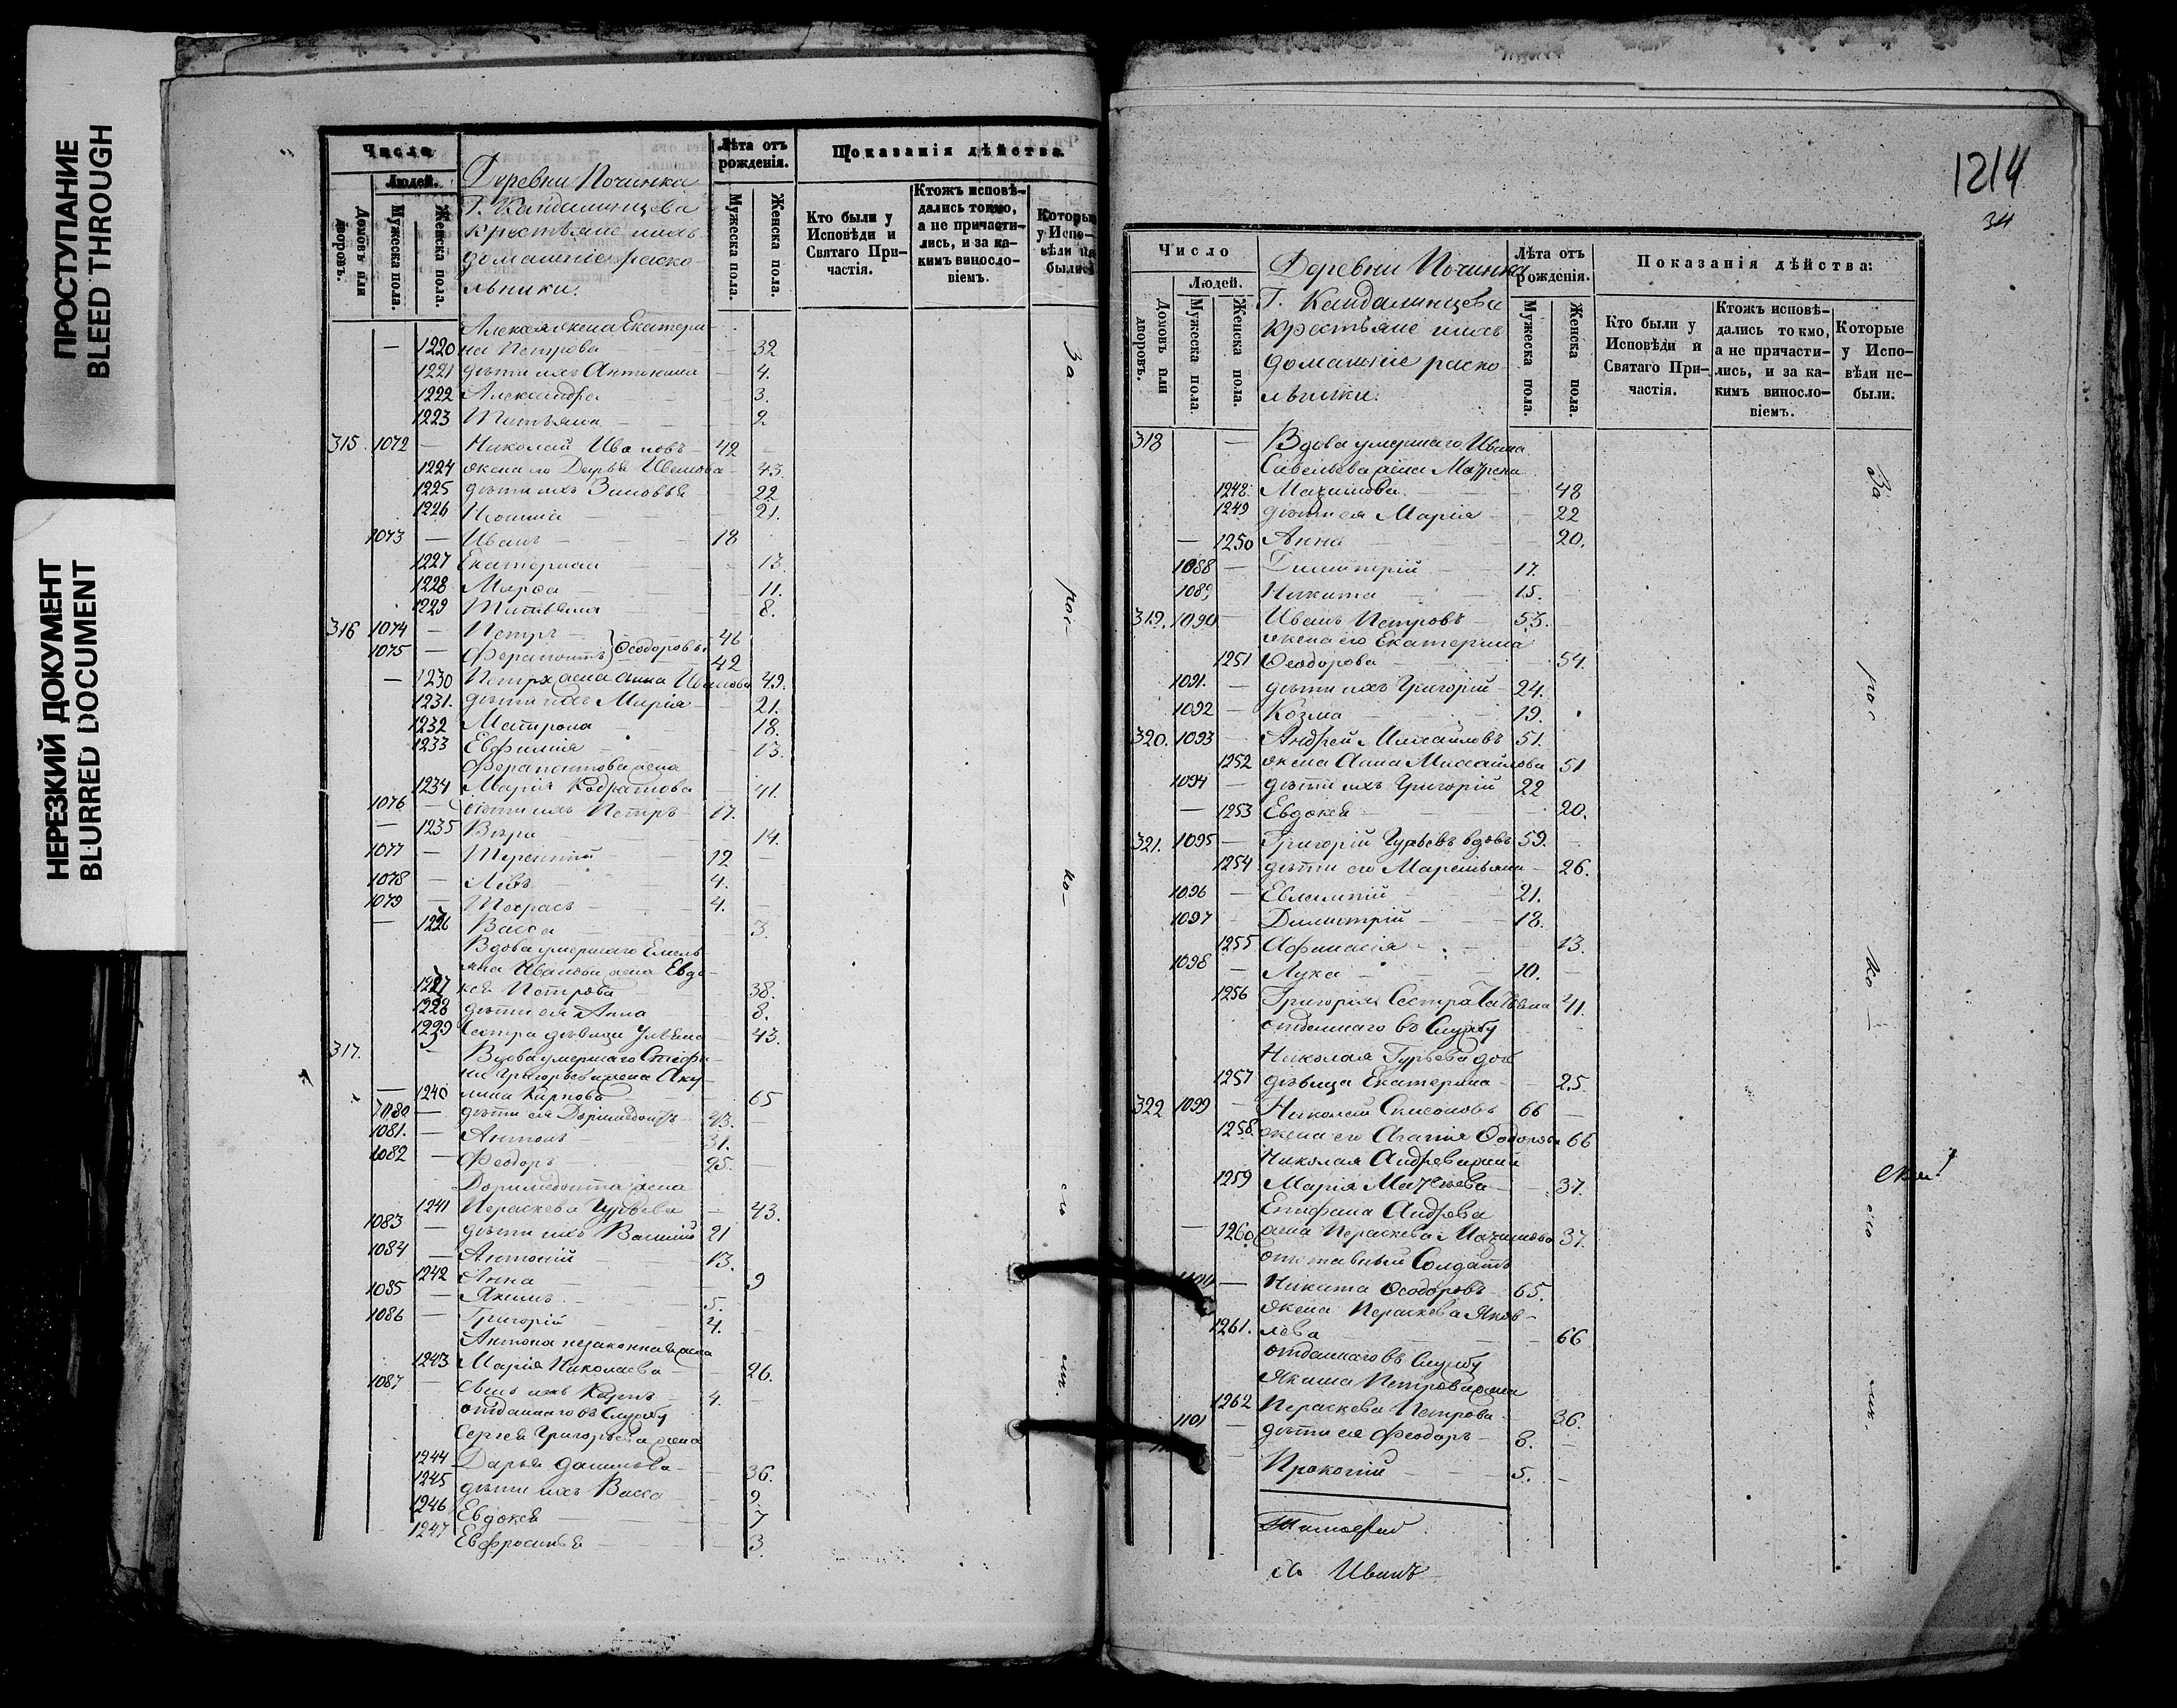 ПРОСТУПАНИЕ
BLEED THROUGH
НЕРЕЗКИЙ ДОКУМЕНТ
BLURRED DOCUMENT
Числа
Людей.
Домовъ или дворовъ.
Мужеска пола.
Женска пола.
Деревни Починка
Г. Кандалинцева
крестьяне ихъ
домашние раско
льники.
Лѣта отъ рожденія.
Мужеска пола.
Женска пола.
Показанія дѣйства.
Кто были у Исповѣди и Святаго Причастія.
Ктожъ исповѣдались токмо, а не причастились, и за какимъ винословіемъ.
Которые у Испо-
Алексея жена Екатери-
— 1220 на Петрова 32
1221 дѣти ихъ Антонина 4.
1222 Александра 3.
1223 Татьяна 2
315 1072 — Николай Ивановъ 42
1224 жена его Дарья 43.
1225 дѣти ихъ Зиновья 22
1226 21.
1073 — Иванъ 18
1227 Екатерина 13.
1228 Марфа 11.
1229 Татьяна 8.
316 1074 — Петръ 46
1075 — Ферапонтъ } Ѳеодоровы 42
— 1230 Петра жена Анна Иванова 49.
1231. дѣти ихъ Марія 21.
1232 Матрона 18.
1233 Евфимія 13.
Ферапонтова жена
1234 Марія 41.
1076 — дѣти ихъ Петръ 17.
— 1235 Вѣра 14.
1077 — Терентий 12
1078 — Левъ 4.
1079 — Тарасъ 4.
— 1236 Васса 3.
Вдова умершаго Емель
яна Иванова жена Евдо-
1237 кея Петрова 38.
1238 дѣти ея Анна 8.
1239 Сестра дѣвица Ульяна 43.
317. — Вдова умершаго Стефа-
на Григорьева жена Аку-
— 1240 лина Карпова 65
1080 — дѣти ея Доримедонтъ 43.
1081. — Антонъ 31.
1082 — Феодоръ 25.
Доримедонта жена
1241 Параскева Гурьева 43.
1083 — дѣти ихъ Василий 21
1084 — Антоній 13.
1242 Анна 9
1085 — Якимъ 5.
1086 — Григорій 4.
Антона незаконная жена
1243 Марія Николаева 26.
1087 — сынъ ихъ Карпъ 4.
отданнаго въ Службу
Сергея Григорьева жена
1244 Дарья Данилова 36.
1245 дѣти ихъ Васса 9.
1246 Евдокея 7
1247 Евфросинья 3.
За
рас-
ко-
ло
мъ.
1214
34
Число
Людей.
Домовъ или дворовъ.
Мужеска пола
Женска пола.
Деревни Починка
Г. Кандалинцева
крестьяне ихъ
домашніе раско
льники.
Лѣта отъ рожденія.
Мужеска пола.
Женска пола.
Показанія дѣйства:
Кто были у Исповѣди и Святаго Причастія.
Ктожъ исповѣдались токмо, а не причастились, и за какимъ винословіемъ.
Которые у Исповѣди небыли.
318 — Вдова умершаго Ивана
Савельева жена Маѵрена
1248. 48
1249 дѣти ея Марія 22
— 1250 Анна 20.
1088 — Димитрій 17.
1089 Никита 15.
319. 1090 — Иванъ Петровъ 53.
жена его Екатерина
1251 Ѳеодорова 54.
1091. — дѣти ихъ Григорій 24.
1092 — Козма 19.
320. 1093 — Андрей Михайловъ 51.
1252 жена Анна Михайлова 51
1094 — дѣти ихъ Григорій 22
— 1253 Евдокея 20.
321. 1095 — Григорій Гурьевъ вдовъ 59.
1254 дѣти его Маремьяна 26.
1096 — Евлампій 21.
1097 — Димитрій 18.
1255 Афанасія 13.
1098 — Лука 10.
1256 Григорія Сестра Татьяна 41.
отданнаго въ Службу
Николая Гурьева доч
1257 дѣвица Екатерина 25.
322 1099 — Николай 66
1258. жена его Агапія Ѳодорова 66
Николая Андрева жена
1259 Марія Матѵеева 37.
Епифана Андрева
— 1260 жена Параскева 37.
отставный Солдатъ
— Никита Ѳеодоровъ 65.
жена Параскева Яков-
1261. лева 66
отданнаго въ Службу
Якима Петрова жена
1262 Параскева Петрова 36.
1101 — дѣти ея Феодоръ 8.
— Прокопій 5.
Тимофей
Иванъ
За
рас
ко
ло
мъ.